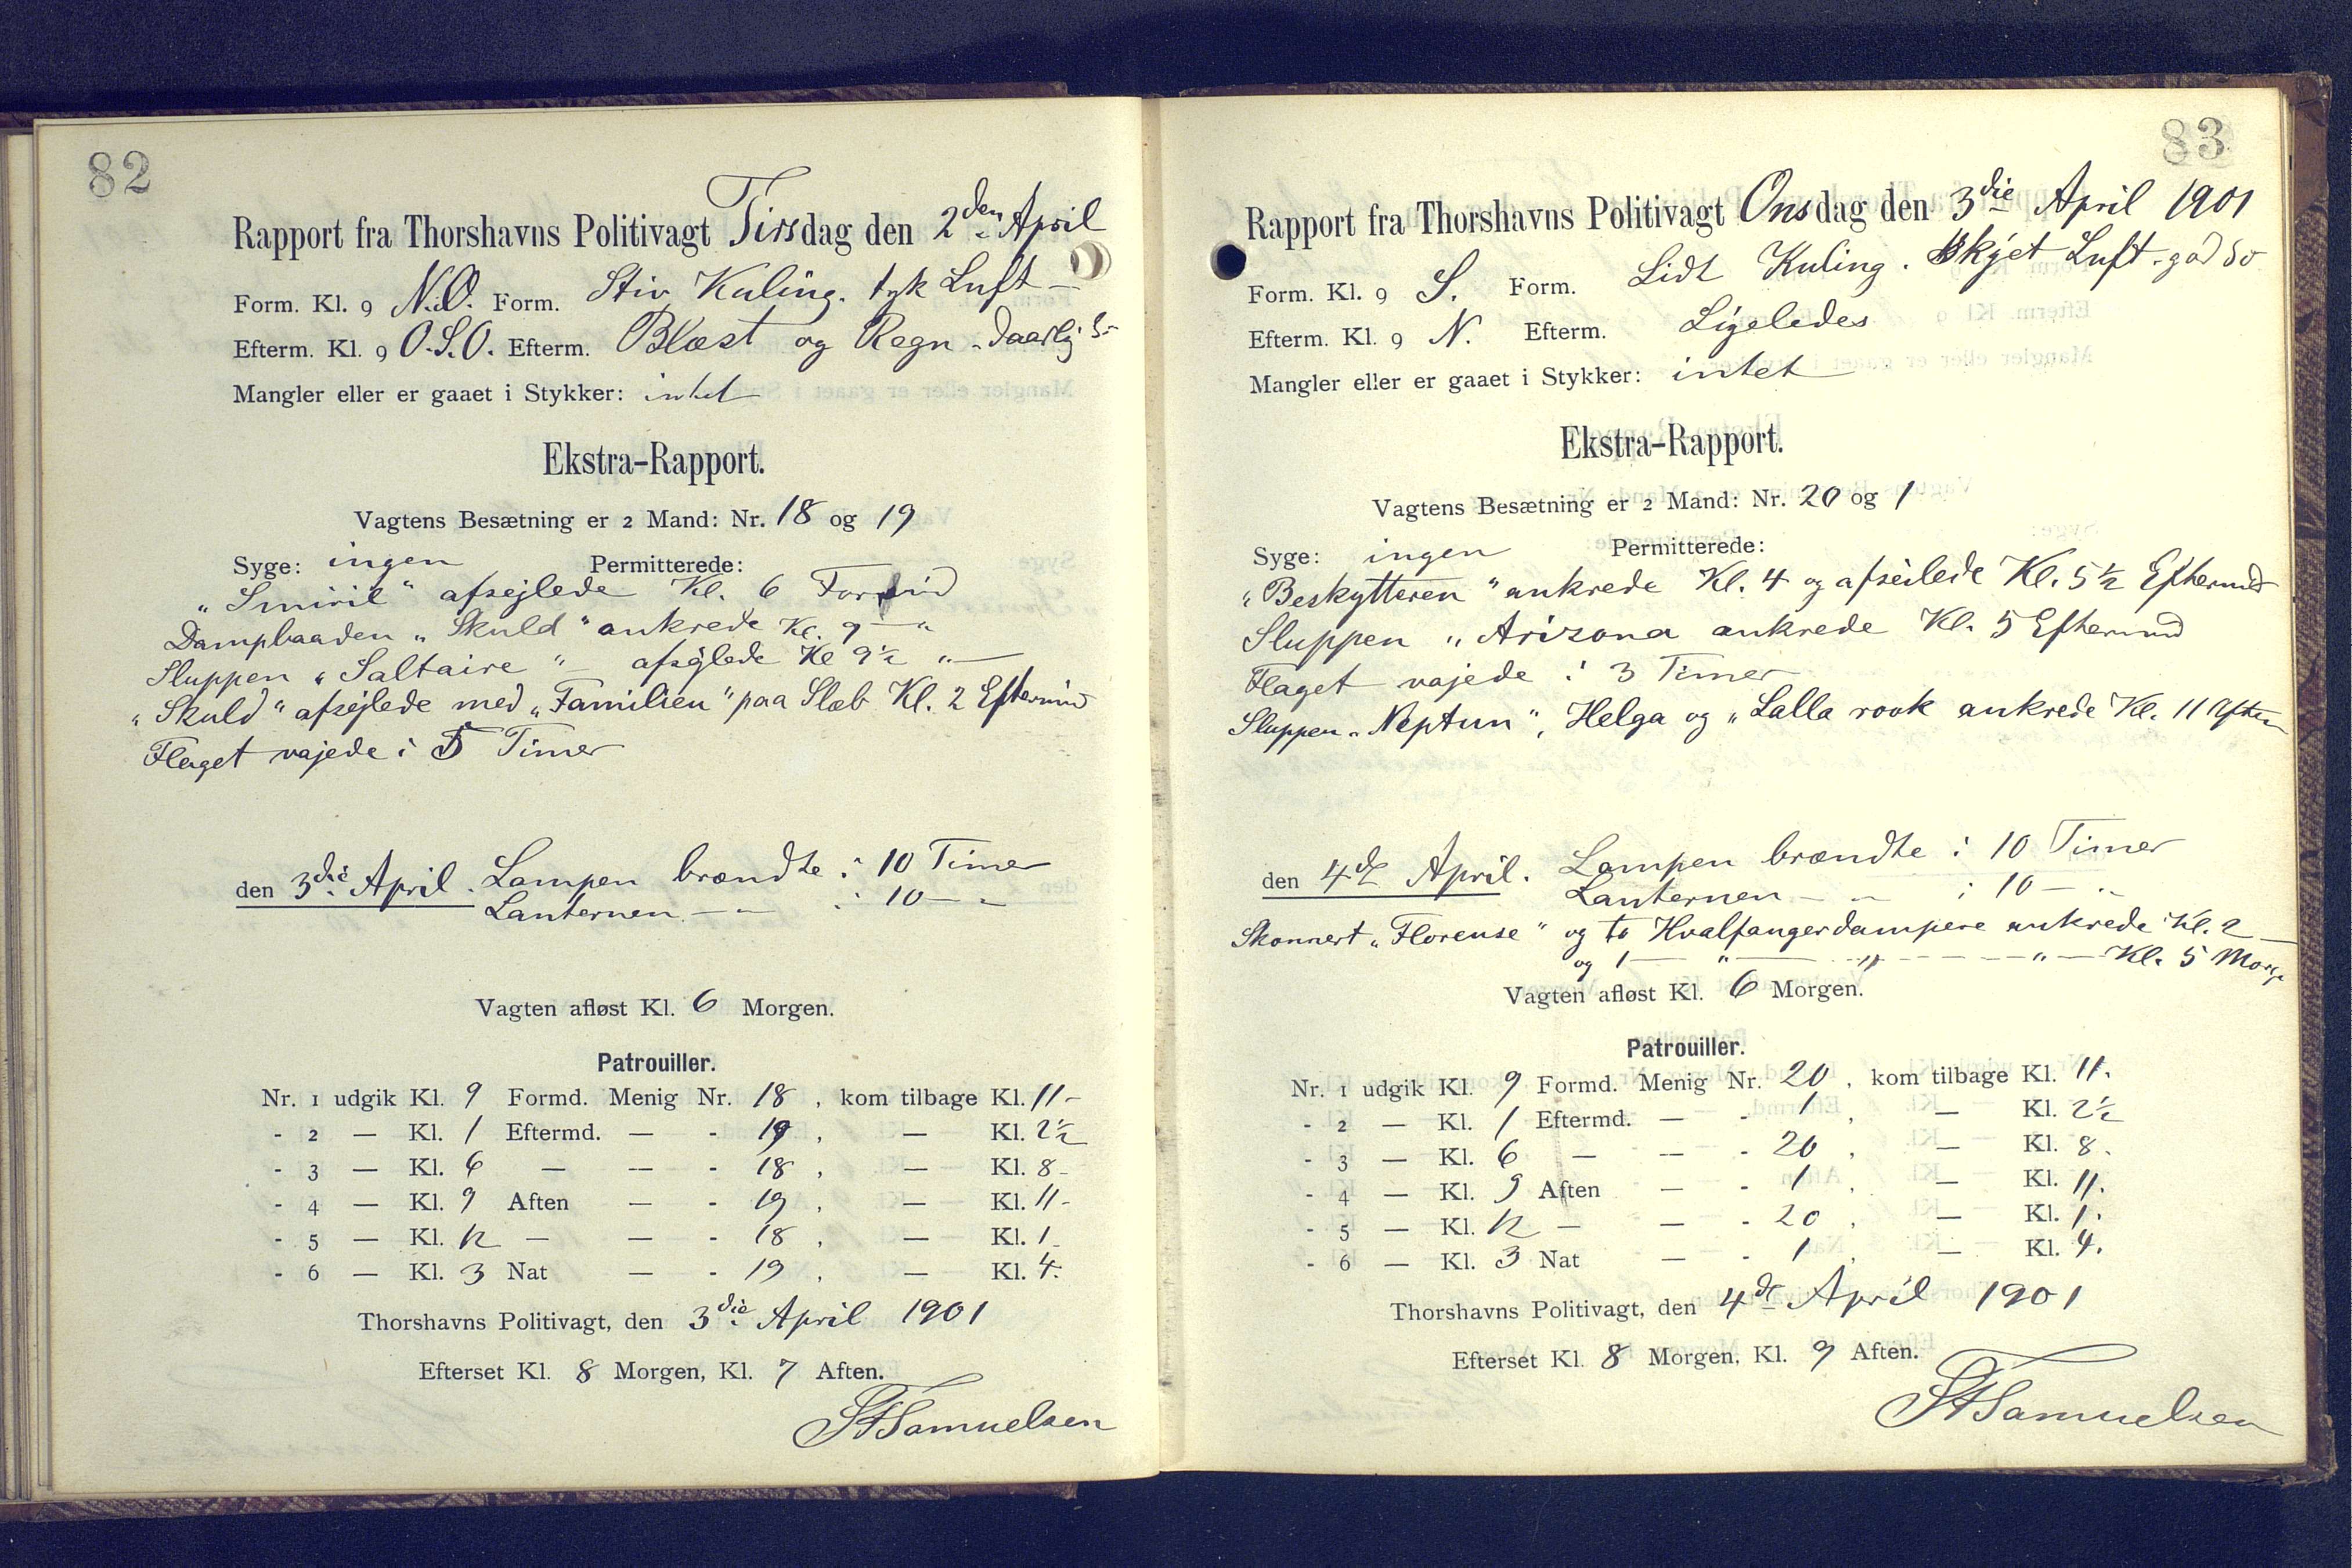 82
Rapport fra Thorshavns Politivagt Tirsdag den 2den April
Form. Kl. 9 N.O. Form. Stiv Kuling. tyk Luft –
Efterm. Kl. 9 O.S.O. Efterm. Blæst og Regn – daarlig Sø
Mangler eller er gaaet i Stykker: intet
Ekstra-Rapport.
Vagtens Besætning er 2 Mand: Nr. 18 og 19
Syge: ingen Permitterede:
„Smiril" afsejlede Kl. 6 Formid
Dampbaaden „Skuld" ankrede Kl. 9 — "
Sluppen „Saltaire" – afsejlede Kl 9½ " —
„Skuld" afsejlede med „Familien" paa Slæb Kl. 2 Eftermid
Flaget vajede i 5 Timer
den 3die April. Lampen brændte i 10 Timer
Lanternen — " i 10 — "
Vagten afløst Kl. 6 Morgen.
Patrouiller.
Nr. 1 udgik Kl. 9 Formd. Menig Nr. 18, kom tilbage Kl. 11 -
- 2 — Kl. 1 Eftermd. — - 19, — Kl. 2½
- 3 — Kl. 6 — — - 18, — Kl. 8 -
- 4 — Kl. 9 Aften — - 19, — Kl. 11 -
- 5 — Kl. 12 — — - 18, — Kl. 1 -
- 6 — Kl. 3 Nat — - 19, — Kl. 4.
Thorshavns Politivagt, den 3die April 1901
Efterset Kl. 8 Morgen, Kl. 7 Aften.
Samuelsen
83
Rapport fra Thorshavns Politivagt Onsdag den 3die April 1901
Form. Kl. 9 S. Form. Lidt Kuling. Skyet Luft - god Sø
Efterm. Kl. 9 N. Efterm. Ligeledes
Mangler eller er gaaet i Stykker: intet
Ekstra-Rapport.
Vagtens Besætning er 2 Mand: Nr. 20 og 1
Syge: ingen Permitterede:
„Beskytteren" ankrede Kl. 4 og afseilede Kl. 5½ Eftermid
Sluppen „Arizona ankrede Kl. 5 Eftermid
Flaget vajede i 3 Timer
Sluppen „Neptun", Helga og „Lalla rook ankrede Kl. 11 Aften
den 4de April. Lampen brændte i 10 Timer
Lanternen — " i 10 — "
Skonnert „Florense" og to Hvalfangerdampere ankrede Kl. 2 —
og 1 — " — " — " — Kl. 5 Morge
Vagten afløst Kl. 6 Morgen.
Patrouiller.
Nr. 1 udgik Kl. 9 Formd. Menig Nr. 20, kom tilbage Kl. 11.
- 2 — Kl. 1 Eftermd. — - 1, — Kl. 2½
- 3 — Kl. 6 — — - 20, — Kl. 8.
- 4 — Kl. 9 Aften — - 1, — Kl. 11.
- 5 — Kl. 12 — — - 20, — Kl. 1.
- 6 — Kl. 3 Nat — - 1, — Kl. 4.
Thorshavns Politivagt, den 4de April 1901
Efterset Kl. 8 Morgen, Kl. 9 Aften.
Samuelsen